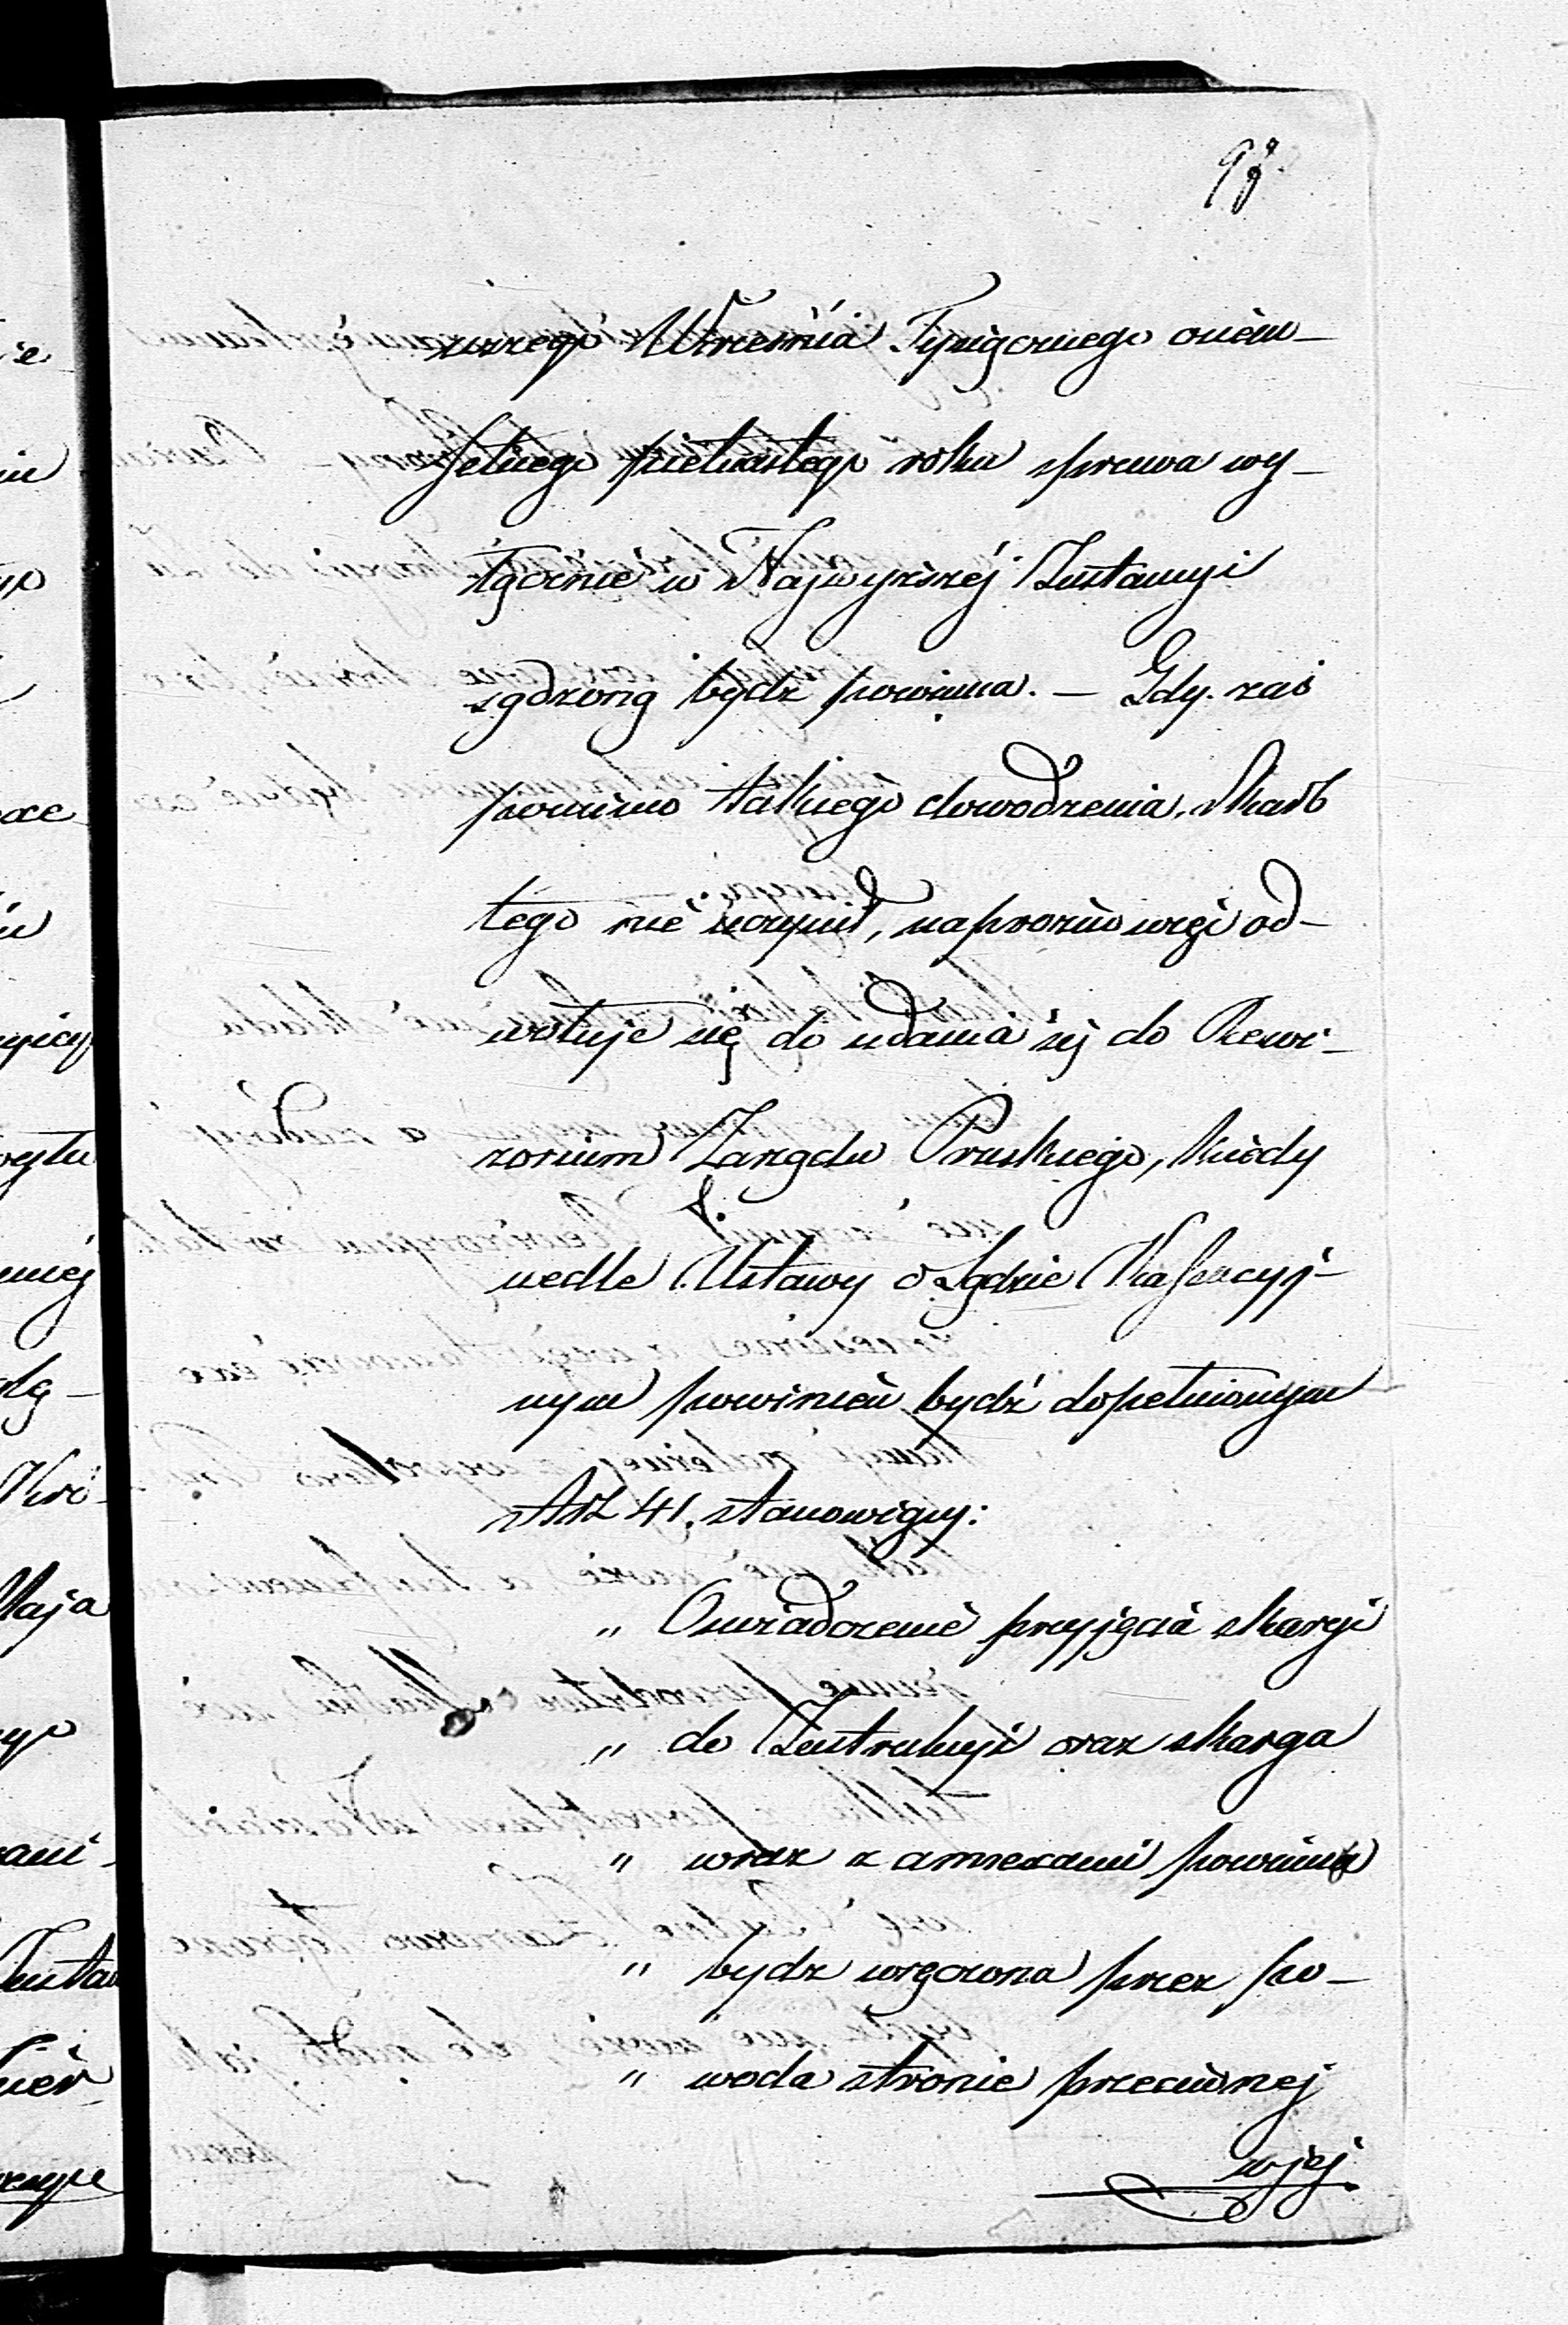 wszego Września Tysiącznego ośm-
setnego pietnastego roku sprawa wy-
łącznie w Najwyższéj Instancyi
sądzoną bydz powinna. — Gdy zaś
pomimo takiego dowodzenia, Skarb
tego nie uczynił, naprożno więc od-
wołuje się do udania się do Rewi-
zorium Zarządu Pruskiego, kiedy
wedle Ustawy o Sądzie Kassacyj-
nym powinien bydź dopełnionym
Art 41. stanowiący:
„ Oświadczenie przyjęcia skargi
„ do Instrukcyi oraz skarga
„ wraz z annexami powinna
„ bydz wręczona przez po-
„ woda stronie przeciwnej
w jej